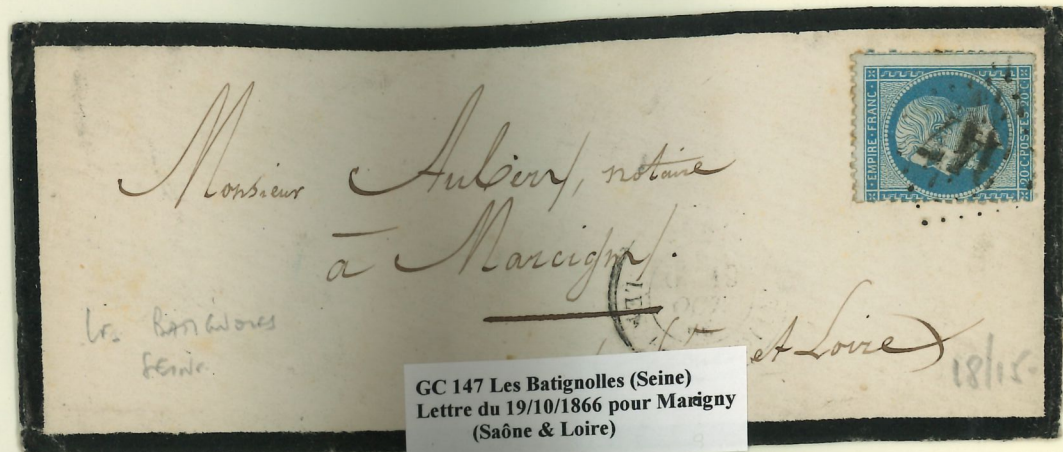 EMPIRE · FRANC ·
20·C·POSTES·20·C
147
Monsieur Aubin, notaire
à Marcigny.
LES
et Loire)
Les BATIGNOLLES
SEINE
18/15
GC 147 Les Batignolles (Seine)
Lettre du 19/10/1866 pour Marcigny
(Saône & Loire)